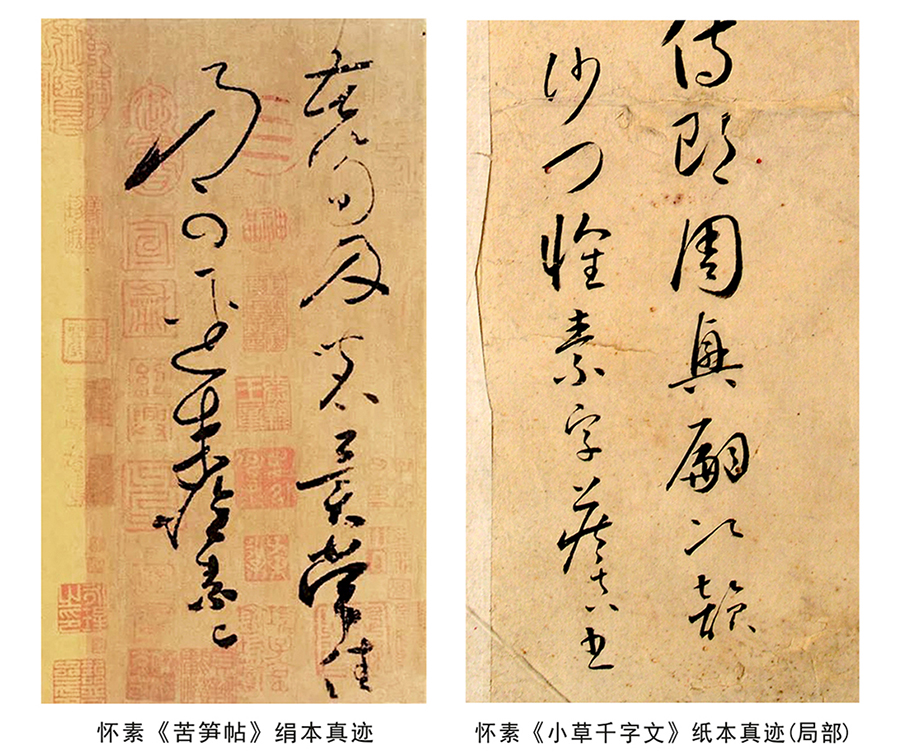 苦筍及茗異常佳
乃可逕來懷素上
侍郎周興嗣次韻
沙門懷素字藏真書
怀素《苦笋帖》绢本真迹
怀素《小草千字文》纸本真迹(局部)